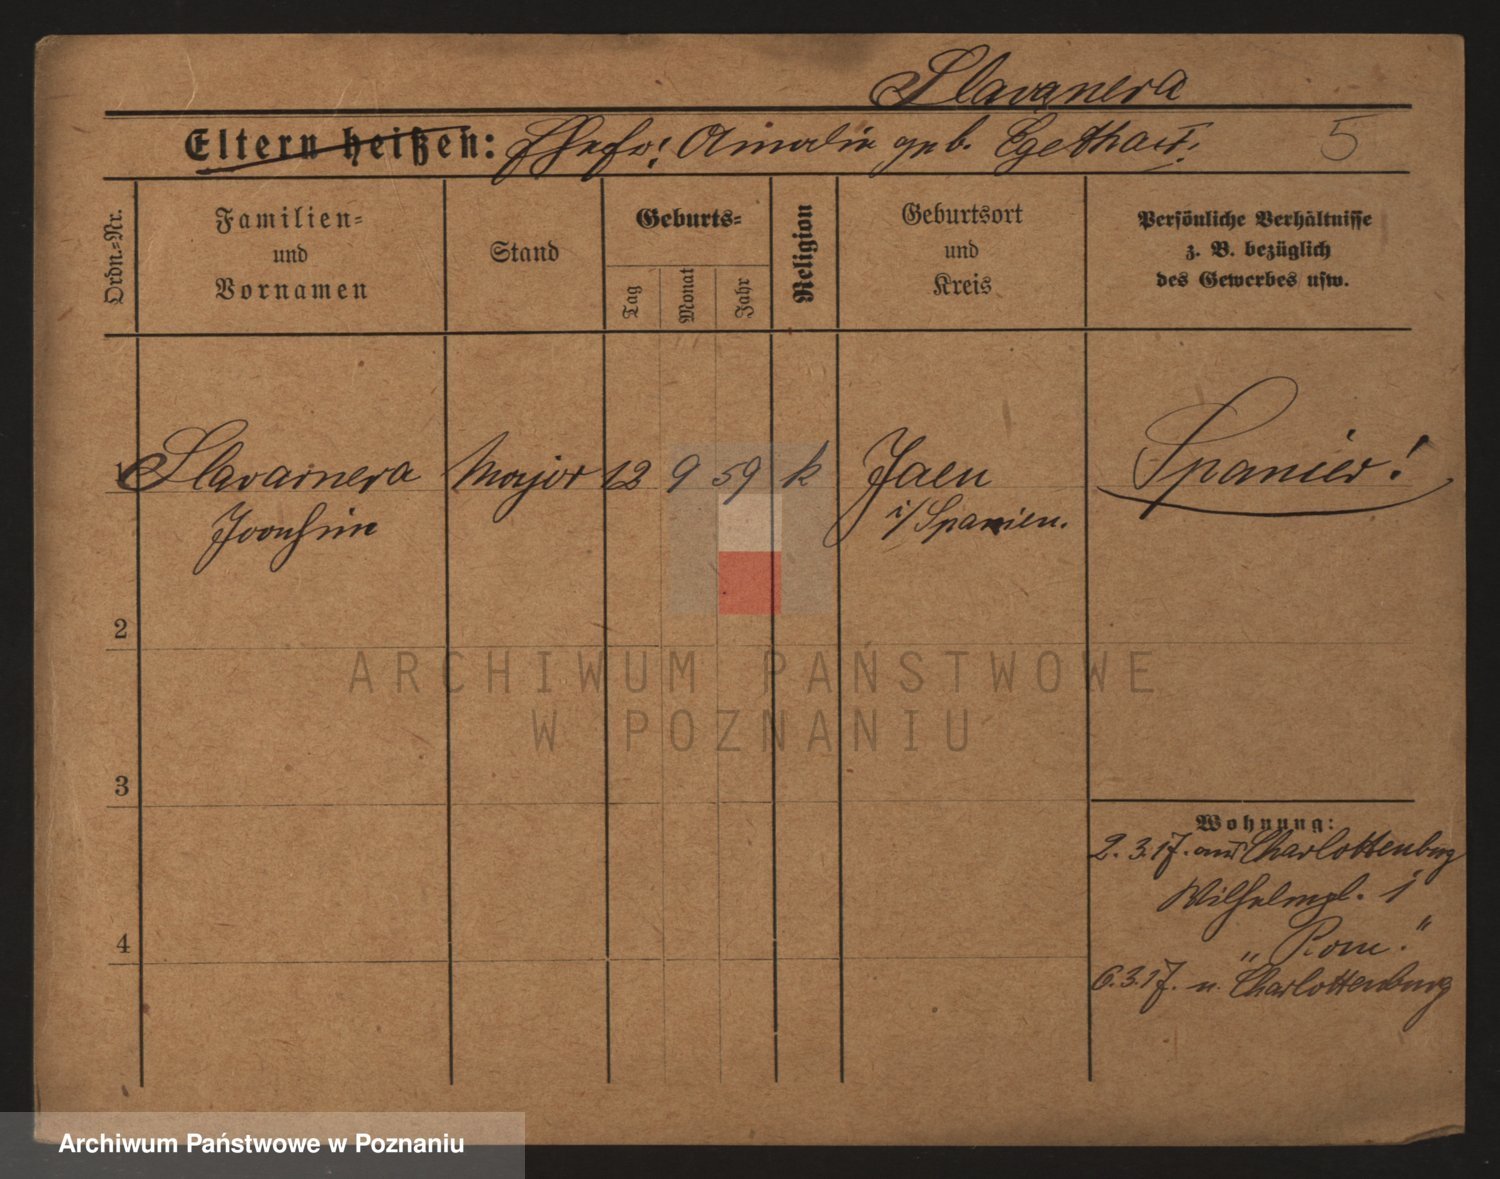 Slavanera
Eltern heißen: Ehefr: Amalie geb. Egethart.
5
Ordn.=Nr.
Familien=
und
Vornamen
Stand
Geburts=
Tag
Monat
Jahr
Religion
Geburtsort
und
Kreis
Persönliche Verhältnisse
z. B. bezüglich
des Gewerbes usw.
1 Slavarnera Major 12 9 59 k Jaen Spanier!
Joachim i/ Spanien.
2
3
4
Wohnung:
2.3.17. aus Charlottenburg
Wilhelmpl. 1
„Rom."
6.3.17. n. Charlottenburg
ARCHIWUM PAŃSTWOWE
W POZNANIU
Archiwum Państwowe w Poznaniu